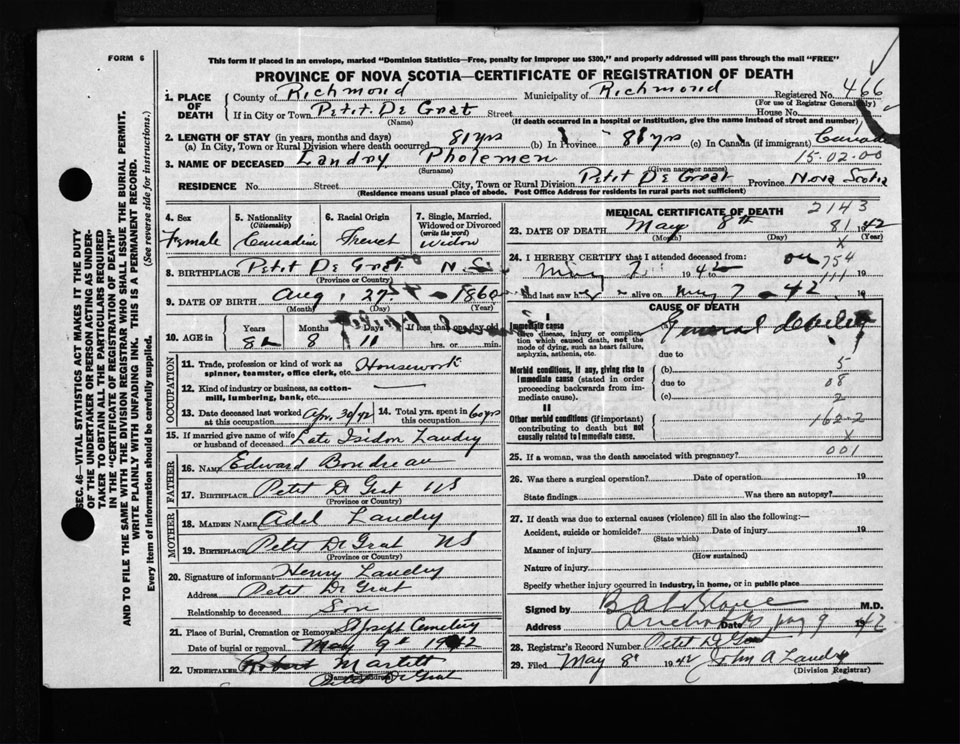 FORM 6
This form if placed in an envelope, marked "Dominion Statistics—Free, penalty for improper use $300," and properly addressed will pass through the mail "FREE"
PROVINCE OF NOVA SCOTIA—CERTIFICATE OF REGISTRATION OF DEATH
Registered No. 466
(For use of Registrar General only)
1. PLACE OF DEATH
County of Richmond Municipality of Richmond
If in City or Town Petit De Grat Street House No.
(Name) (If death occurred in a hospital or institution, give the name instead of street and number)
2. LENGTH OF STAY (in years, months and days)
(a) In City, Town or Rural Division where death occurred 81 yrs (b) In Province 81 yrs (c) In Canada (if immigrant) Canada
15.02.00
3. NAME OF DECEASED Landry Pholemen
(Surname) (Given name or names)
RESIDENCE No. Street City, Town or Rural Division Petit De Grat Province Nova Scotia
(Residence means usual place of abode. Post Office Address for residents in rural parts not sufficient)
4. Sex
Female
5. Nationality
(Citizenship)
Canadian
6. Racial Origin
French
7. Single, Married, Widowed or Divorced
(write the word)
Widow
8. BIRTHPLACE Petit De Grat N.S.
(Province or Country)
9. DATE OF BIRTH Aug. 27 1860
(Month) (Day) (Year)
10. AGE in
Years Months Days If less than one day old
8 11 hrs. or min.
OCCUPATION
11. Trade, profession or kind of work as
spinner, teamster, office clerk, etc. Housework
12. Kind of industry or business, as cotton-
mill, lumbering, bank, etc.
13. Date deceased last worked at this occupation Apr. 30/42
14. Total yrs. spent in this occupation 60 yrs
15. If married give name of wife or husband of deceased Late Isidor Landry
FATHER
16. NAME Edward Boudreau
17. BIRTHPLACE Petit De Grat NS
MOTHER
18. MAIDEN NAME Adel Landry
19. BIRTHPLACE Petit De Grat NS
(Province or Country)
20. Signature of informant Henry Landry
Address Petit De Grat
Relationship to deceased Son
21. Place of Burial, Cremation or Removal St Joseph Cemetery
Date of burial or removal May 9th 1942
22. UNDERTAKER Robert Martell
(Name and address)
Petit De Grat
MEDICAL CERTIFICATE OF DEATH
2143
23. DATE OF DEATH May 8th 1942
(Month) (Day) (Year)
81
X
24. I HEREBY CERTIFY that I attended deceased from on 754
May 7 1942 111 19
and last saw her alive on May 7 42 19
CAUSE OF DEATH
I
Immediate cause
Give disease, injury or complication which caused death, not the mode of dying, such as heart failure, asphyxia, asthenia, etc.
General debility
due to
Morbid conditions, if any, giving rise to immediate cause (stated in order proceeding backwards from immediate cause).
(b) 5
due to 08
(c) 2
II
Other morbid conditions (if important) contributing to death but not causally related to immediate cause.
162-2
X
25. If a woman, was the death associated with pregnancy? 001
26. Was there a surgical operation? Date of operation 19
State findings Was there an autopsy?
27. If death was due to external causes (violence) fill in also the following:—
Accident, suicide or homicide? Date of injury 19
(State which)
Manner of injury
(How sustained)
Nature of injury
Specify whether injury occurred in industry, in home, or in public place
Signed by M.D.
Address Arichat NS Date May 9 1942
28. Registrar's Record Number Petit De Grat
29. Filed May 8 1942 John A Landry
(Division Registrar)
SEC. 46—VITAL STATISTICS ACT MAKES IT THE DUTY
OF THE UNDERTAKER OR PERSON ACTING AS UNDER-
TAKER TO OBTAIN ALL THE PARTICULARS REQUIRED
IN THE "CERTIFICATE OF REGISTRATION OF DEATH"
AND TO FILE THE SAME WITH THE DIVISION REGISTRAR WHO SHALL ISSUE THE BURIAL PERMIT.
WRITE PLAINLY WITH UNFADING INK. THIS IS A PERMANENT RECORD.
Every item of information should be carefully supplied. (See reverse side for instructions.)